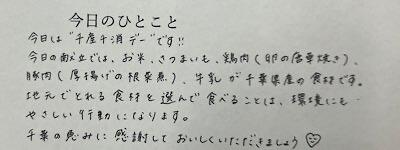 今日のひとこと
今日は“千産千消デー”です!!
今日の献立では、お米、さつまいも、鶏肉(卵の唐草焼き)、
豚肉(厚揚げの根菜煮)、牛乳が千葉県産の食材です。
地元でとれる食材を選んで食べることは、環境にも
やさしい行動になります。
千葉の恵みに感謝しておいしくいただきましょう